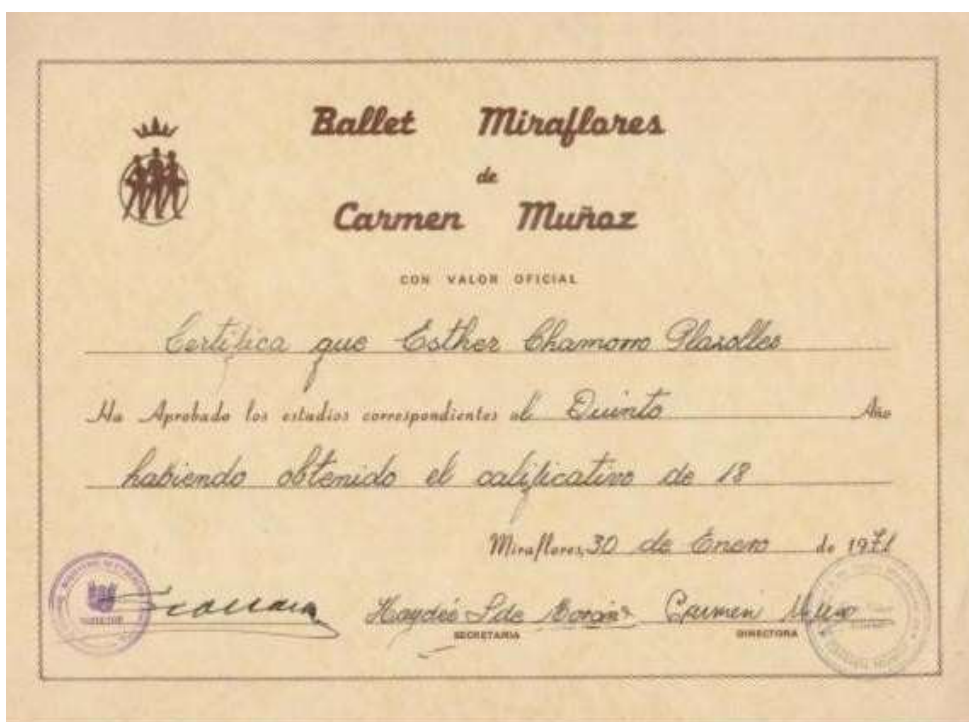 Ballet Miraflores
de
Carmen Muñoz
CON VALOR OFICIAL
Certifica que Esther Chamorro Plasolles
Ha Aprobado los estudios correspondientes al Quinto Año
habiendo obtenido el calificativo de 18
Miraflores, 30 de Enero de 1971
Haydée S de
SECRETARIA
Carmen Muñoz
DIRECTORA